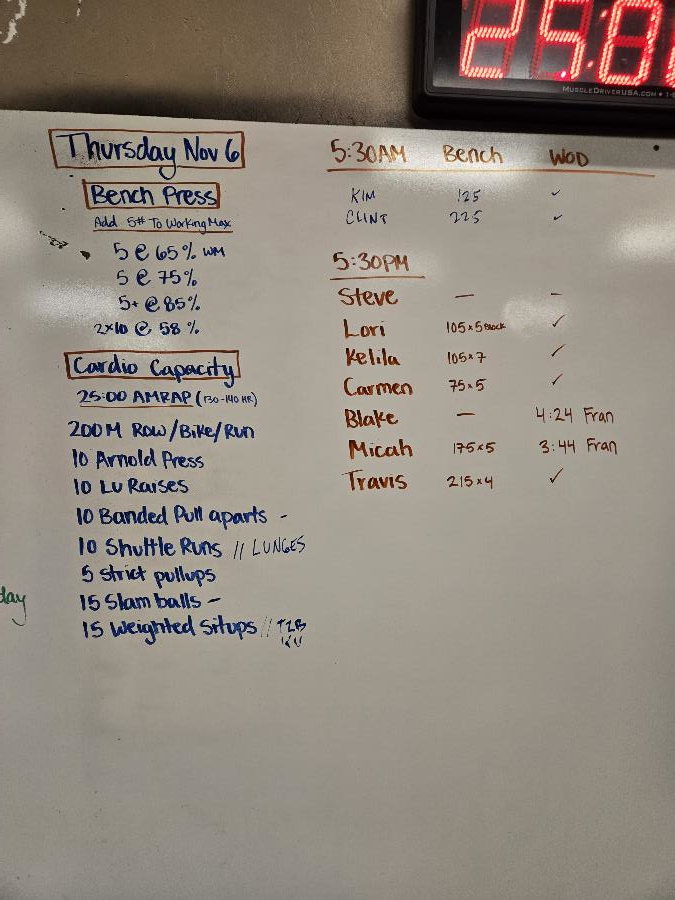 25:0
MuscleDriverUSA.com • 1-
Thursday Nov 6
Bench Press
Add 5# To Working Max
5 @ 65% WM
5 @ 75%
5+ @ 85%
2x10 @ 58%
Cardio Capacity
25:00 AMRAP (130-140 HR)
200M Row/Bike/Run
10 Arnold Press
10 Lu Raises
10 Banded Pull aparts -
10 Shuttle Runs // LUNGES
5 Strict pullups
15 Slam balls -
15 Weighted Situps // T2B
day
5:30AM Bench WOD
KIM 125 ✓
CLINT 225 ✓
5:30PM
Steve — –
Lori 105x5 Block ✓
Kelila 105x7 ✓
Carmen 75x5 ✓
Blake — 4:24 Fran
Micah 175x5 3:44 Fran
Travis 215x4 ✓